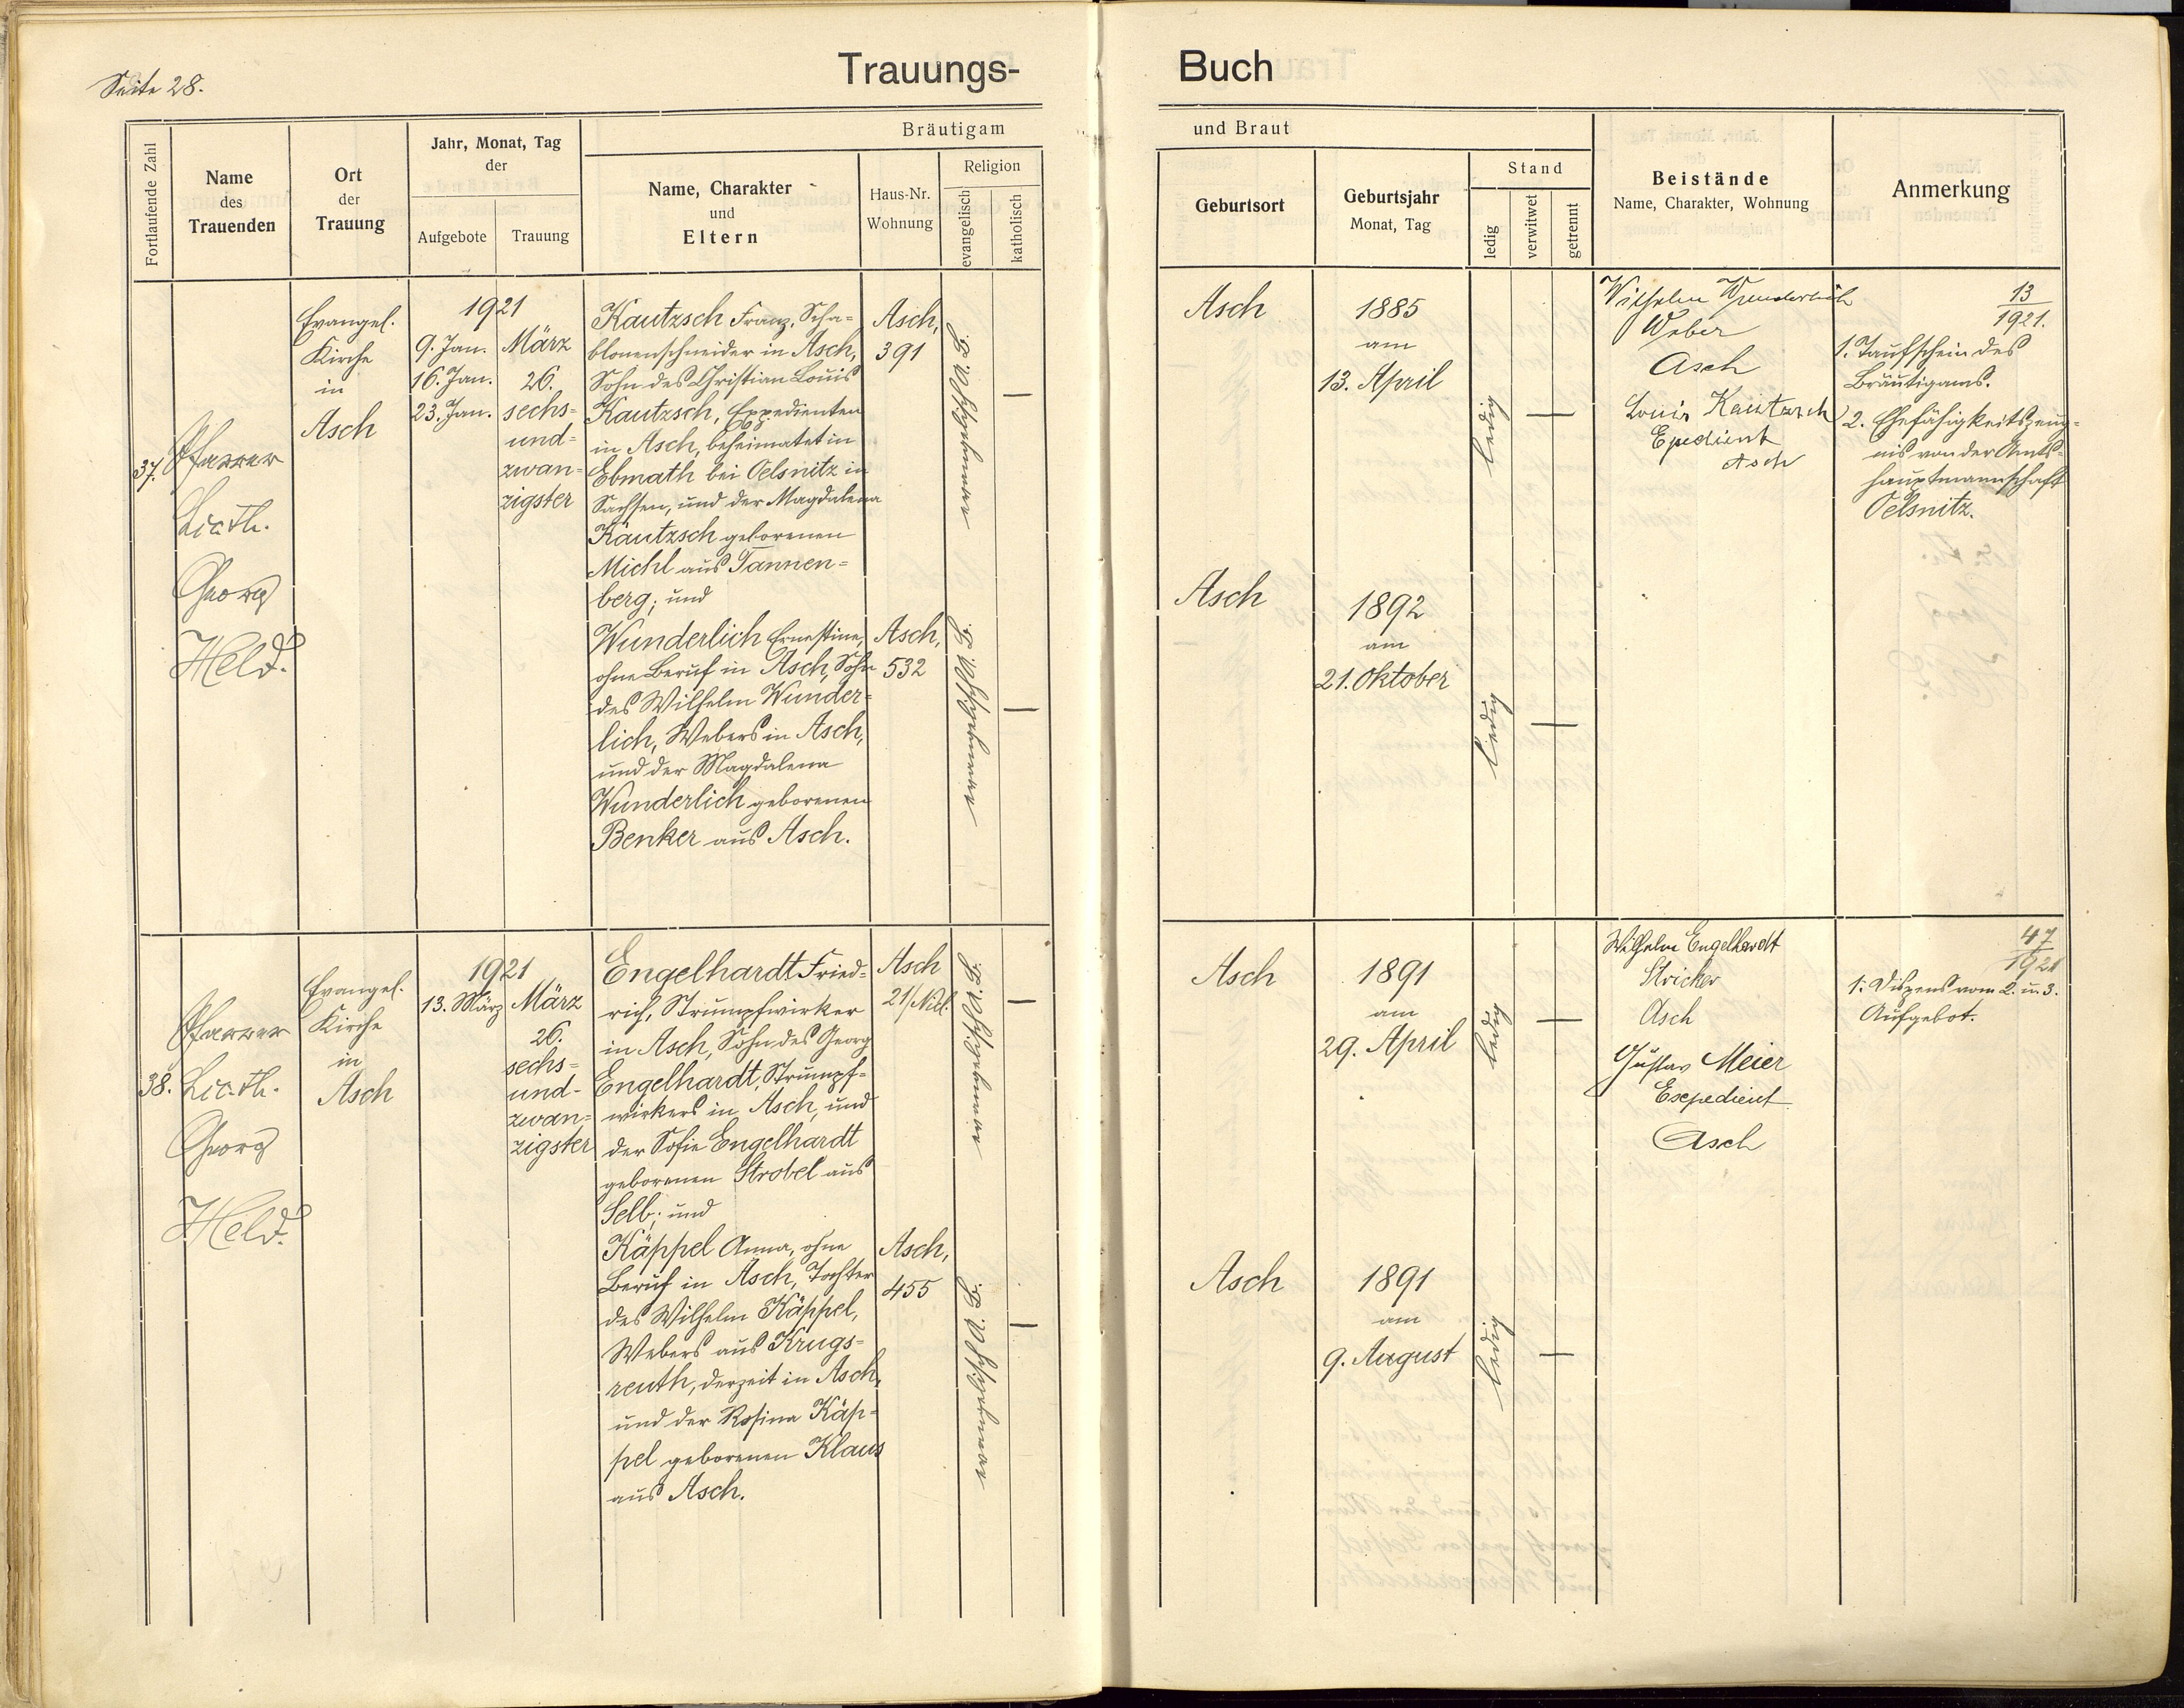 Seite 28.
Trauungs-
Buch
Fortlaufende Zahl
Name
des
Trauenden
Ort
der
Trauung
Jahr, Monat, Tag
der
Aufgebote
Trauung
Bräutigam
Name, Charakter
und
Eltern
Haus-Nr.
Wohnung
Religion
evangelisch
katholisch
und Braut
Geburtsort
Geburtsjahr
Monat, Tag
Stand
ledig
verwitwet
getrennt
Beistände
Name, Charakter, Wohnung
Anmerkung
37.
Pfarrer
Lic. th.
Georg
Held.
Evangel.
Kirche
in
Asch
1921
9. Jan.
16. Jan.
23. Jan.
März
26.
sechs=
und=
zwan=
zigster
Kautzsch Franz, Scha=
blonenschneider in Asch,
Sohn des Christian Louis
Kautzsch, Expedienten
in Asch, beheimatet in
Ebmath bei Oelsnitz in
Sachsen, und der Magdalena
Kautzsch geborenen
Michl aus Tannen=
berg; und
Asch,
391
evangelisch A. B.
—
Wunderlich Ernestine,
ohne Beruf in Asch, Sohn
des Wilhelm Wunder=
lich, Webers in Asch,
und der Magdalena
Wunderlich geborenen
Benker aus Asch.
Asch,
532
evangelisch A. B.
—
Asch
1885
am
13. April
ledig
—
Asch
1892
am
21. Oktober
ledig
—
Wilhelm Wunderlich
Weber
Asch
Louis Kautzsch
Epedient
Asch
13
1921.
1. Taufschein des
Bräutigams.
2. Ehefähigkeitszeug=
nis von der Amts=
hauptmannschaft
Oelsnitz.
38.
Pfarrer
Lic. th.
Georg
Held.
Evangel.
Kirche
in
Asch
1921
13. März
März
26.
sechs=
und-
zwan=
zigster
Engelhardt Fried=
rich, Strumpfwirker
in Asch, Sohn des Georg
Engelhardt, Strumpf=
wirkers in Asch, und
der Sofie Engelhardt
geborenen Strobel aus
Selb; und
Asch
21/Nicl.
evangelisch A. B.
—
Käppel Anna, ohne
Beruf in Asch, Tochter
des Wilhelm Käppel,
Webers aus Krugs=
reuth, derzeit in Asch,
und der Rosina Käp=
pel geborenen Klaus
aus Asch.
Asch,
455
evangelisch A. B.
—
Asch
1891
am
29. April
ledig
—
Asch
1891
am
9. August
ledig
—
Wilhelm Engelhardt
Stricker
Asch
Gustav Meier
Exepedient
Asch
47
1921
1. Dispens vom 2. u. 3.
Aufgebot.